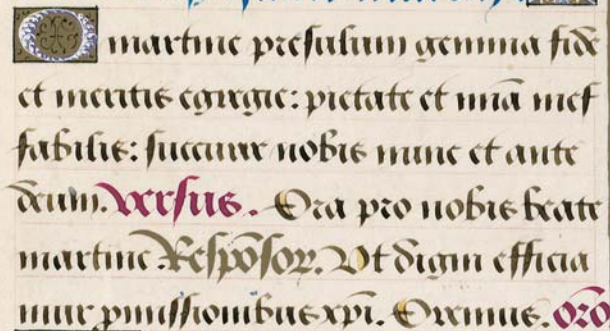 O martine presulum gemma fide
et meritis egregie: pietate et mīa inef
fabilis: succurre nobis nunc et ante
deum. Versus. Ora pro nobis beate
martine. Respōsor. Ut digni efficia
mur pmissionibus xpi. Oremus. orō